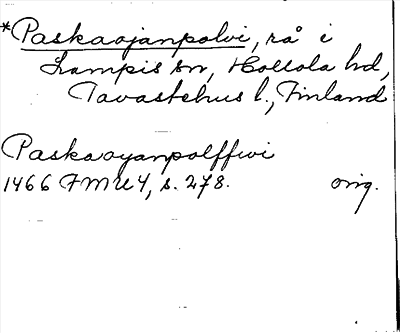 *Paskaojanpolvi, rå i
Lampis sn, Hollola hd,
Tavastehus l., Finland
Paskaoyanpolffwi
1466 FMU4, s. 278. orig.